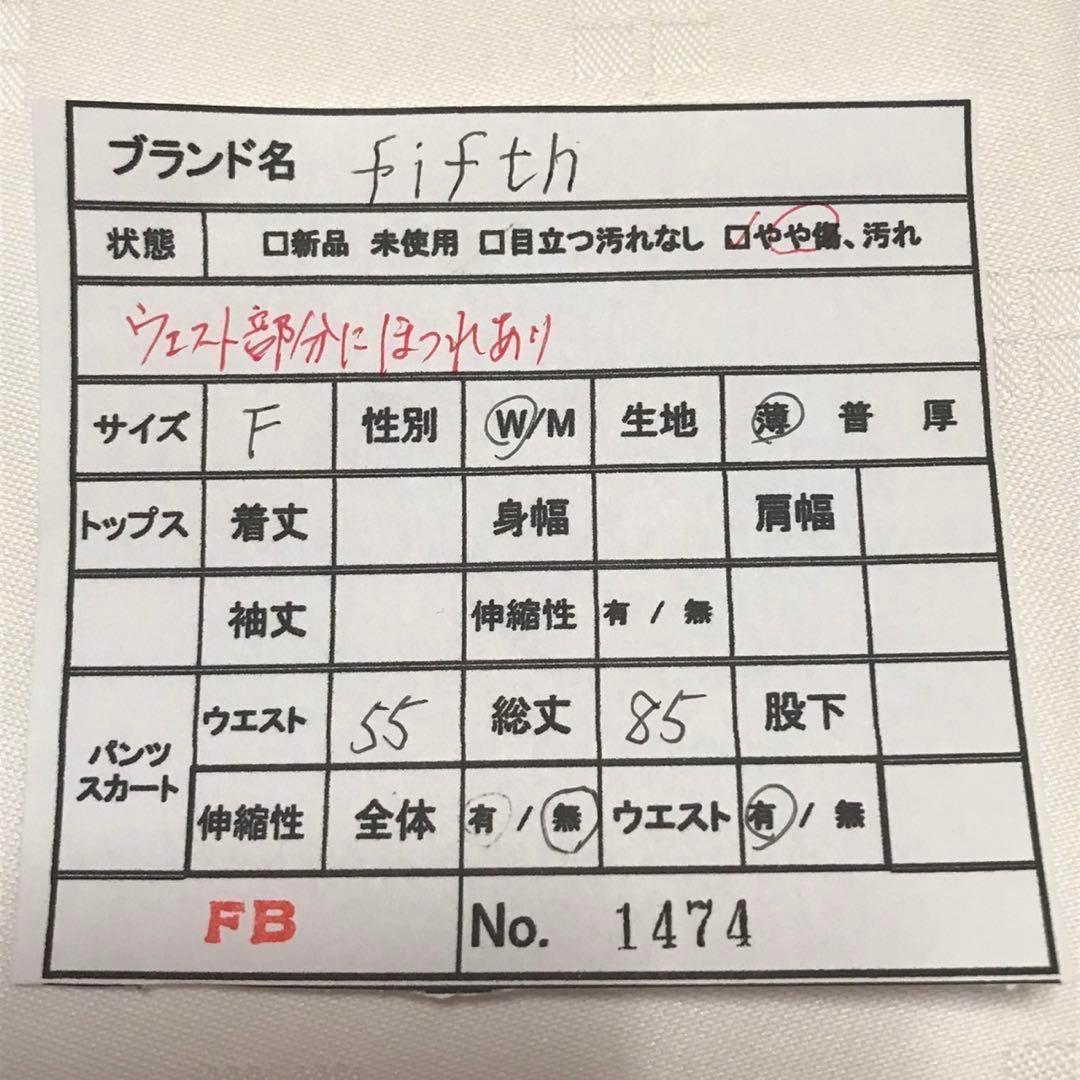 ブランド名 fifth
状態 □新品 未使用 □目立つ汚れなし □やや傷、汚れ
ウエスト部分にほつれあり
サイズ F 性別 W/M 生地 薄 普 厚
トップス 着丈 身幅 肩幅
袖丈 伸縮性 有 / 無
パンツ
スカート
ウエスト 55 総丈 85 股下
伸縮性 全体 有 / 無 ウエスト 有 / 無
FB No. 1474